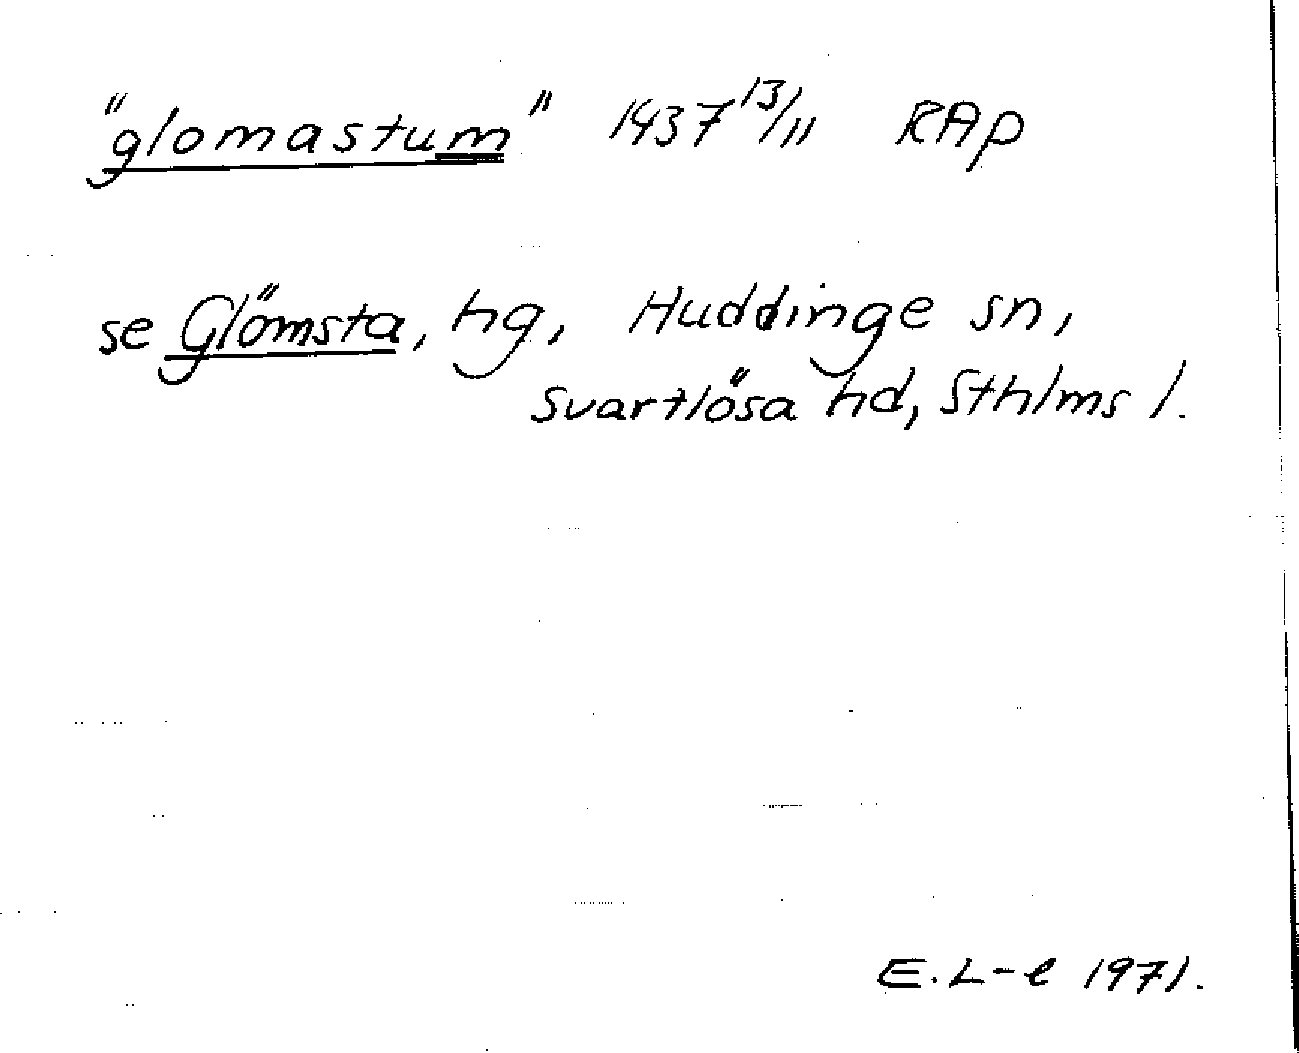 "glomastum" 1437 13/11 RAp
se Glömsta, hg, Huddinge sn,
Svartlösa hd, Sthlms l.
E. L-e 1971.